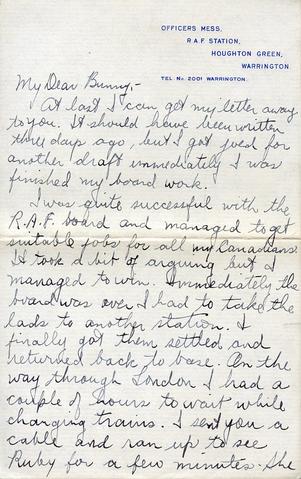 OFFICERS MESS,
R.A.F. STATION,
HOUGHTON GREEN,
WARRINGTON.
TEL No. 2001 WARRINGTON.
My Dear Bunny,-
At last I can get my letter away
to you. It should have been written
three days ago, but I got joed for
another draft immediately I was
finished my board work.
I was quite successful with the
R.A.F. board and managed to get
suitable jobs for all my Canadians.
It took a bit of arguing but I
managed to win. Immediately the
board was over I had to take the
lads to another station. I
finally got them settled and
returned back to base. On the
way through London I had a
couple of hours to wait while
changing trains. I sent you a
cable and ran up to see
Ruby for a few minutes. She